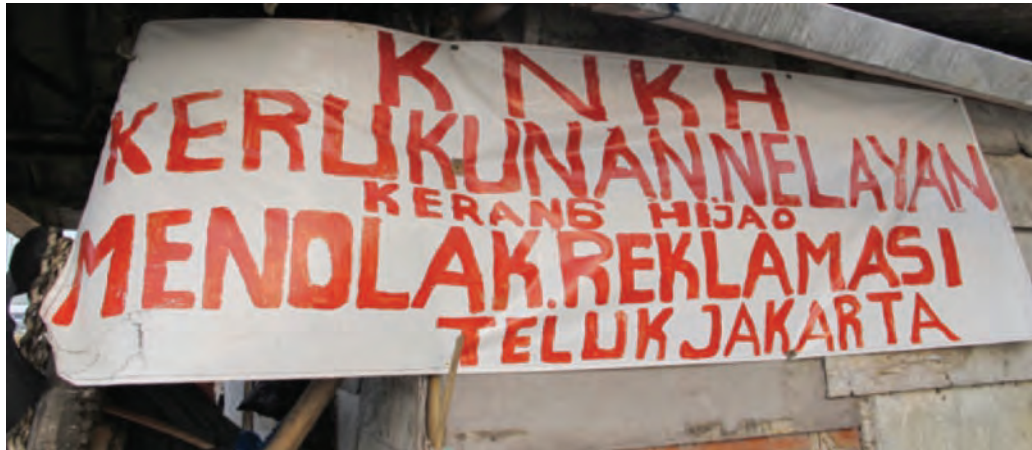 K N K H
KERUKUNAN.NELAYAN
KERANG HIJAO
MENOLAK.REKLAMASI
TELUK JAKARTA